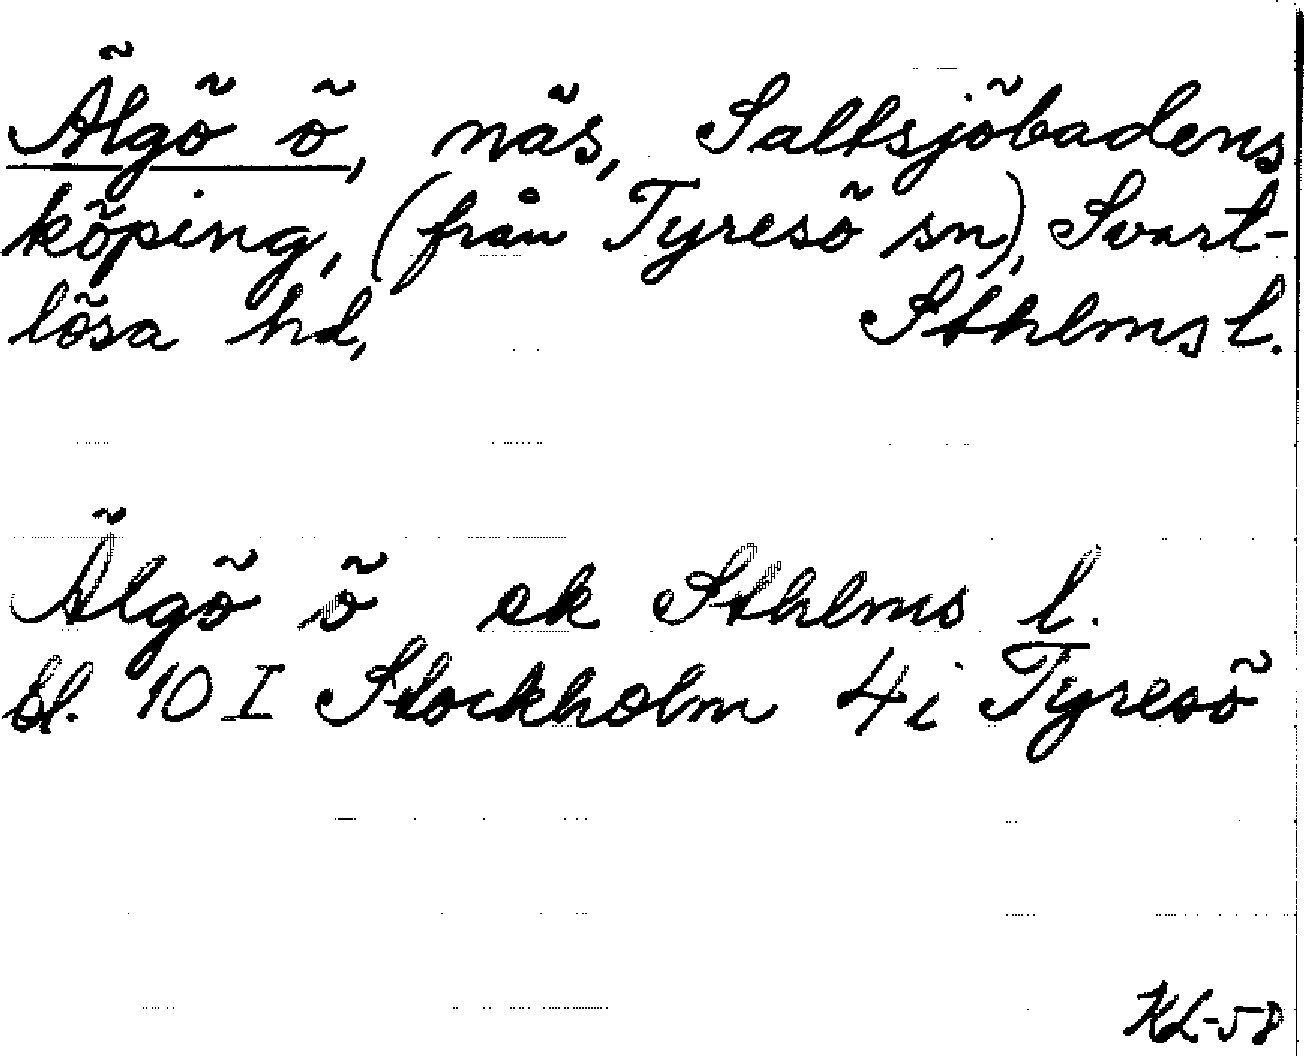 Älgö ö, näs, Saltsjöbadens
köping, (från Tyresö sn), Svart-
lösa hd, Sthlms l.
Älgö ö ek Sthlms l.
bl. 10 I Stockholm 4i Tyresö
KL-58